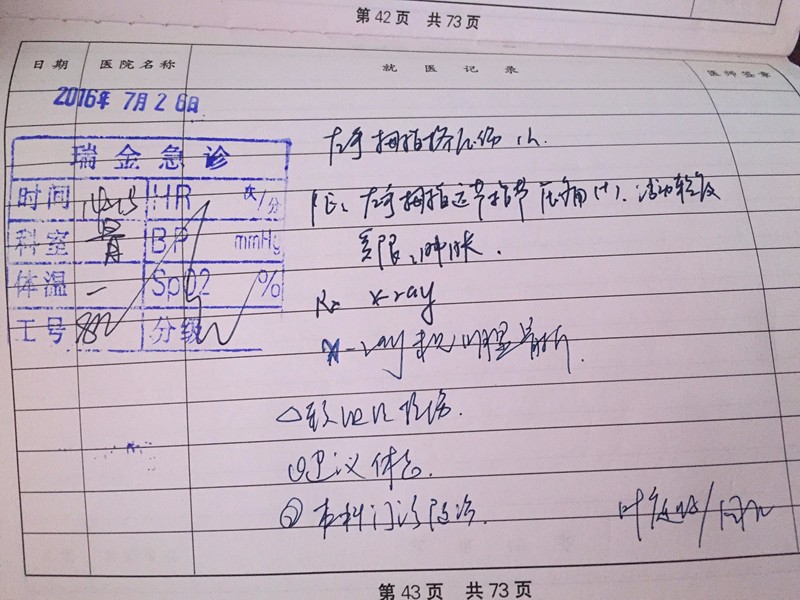 第42页 共73页
日期 医院名称 就医记录 医师签章
2016年 7月26日
瑞金急诊
时间 HR 次/分
科室 骨 BP mmHg
体温 — SpO2 %
工号 分级
左手拇指挤压伤 1h.
PE: 左手拇指近节指节 压痛(+). 活动轻度
受限, 肿胀.
Rx x-ray
x-ray 未见明显骨折.
△软组织挫伤.
①建议休息.
②本科门诊随诊.
第43页 共73页